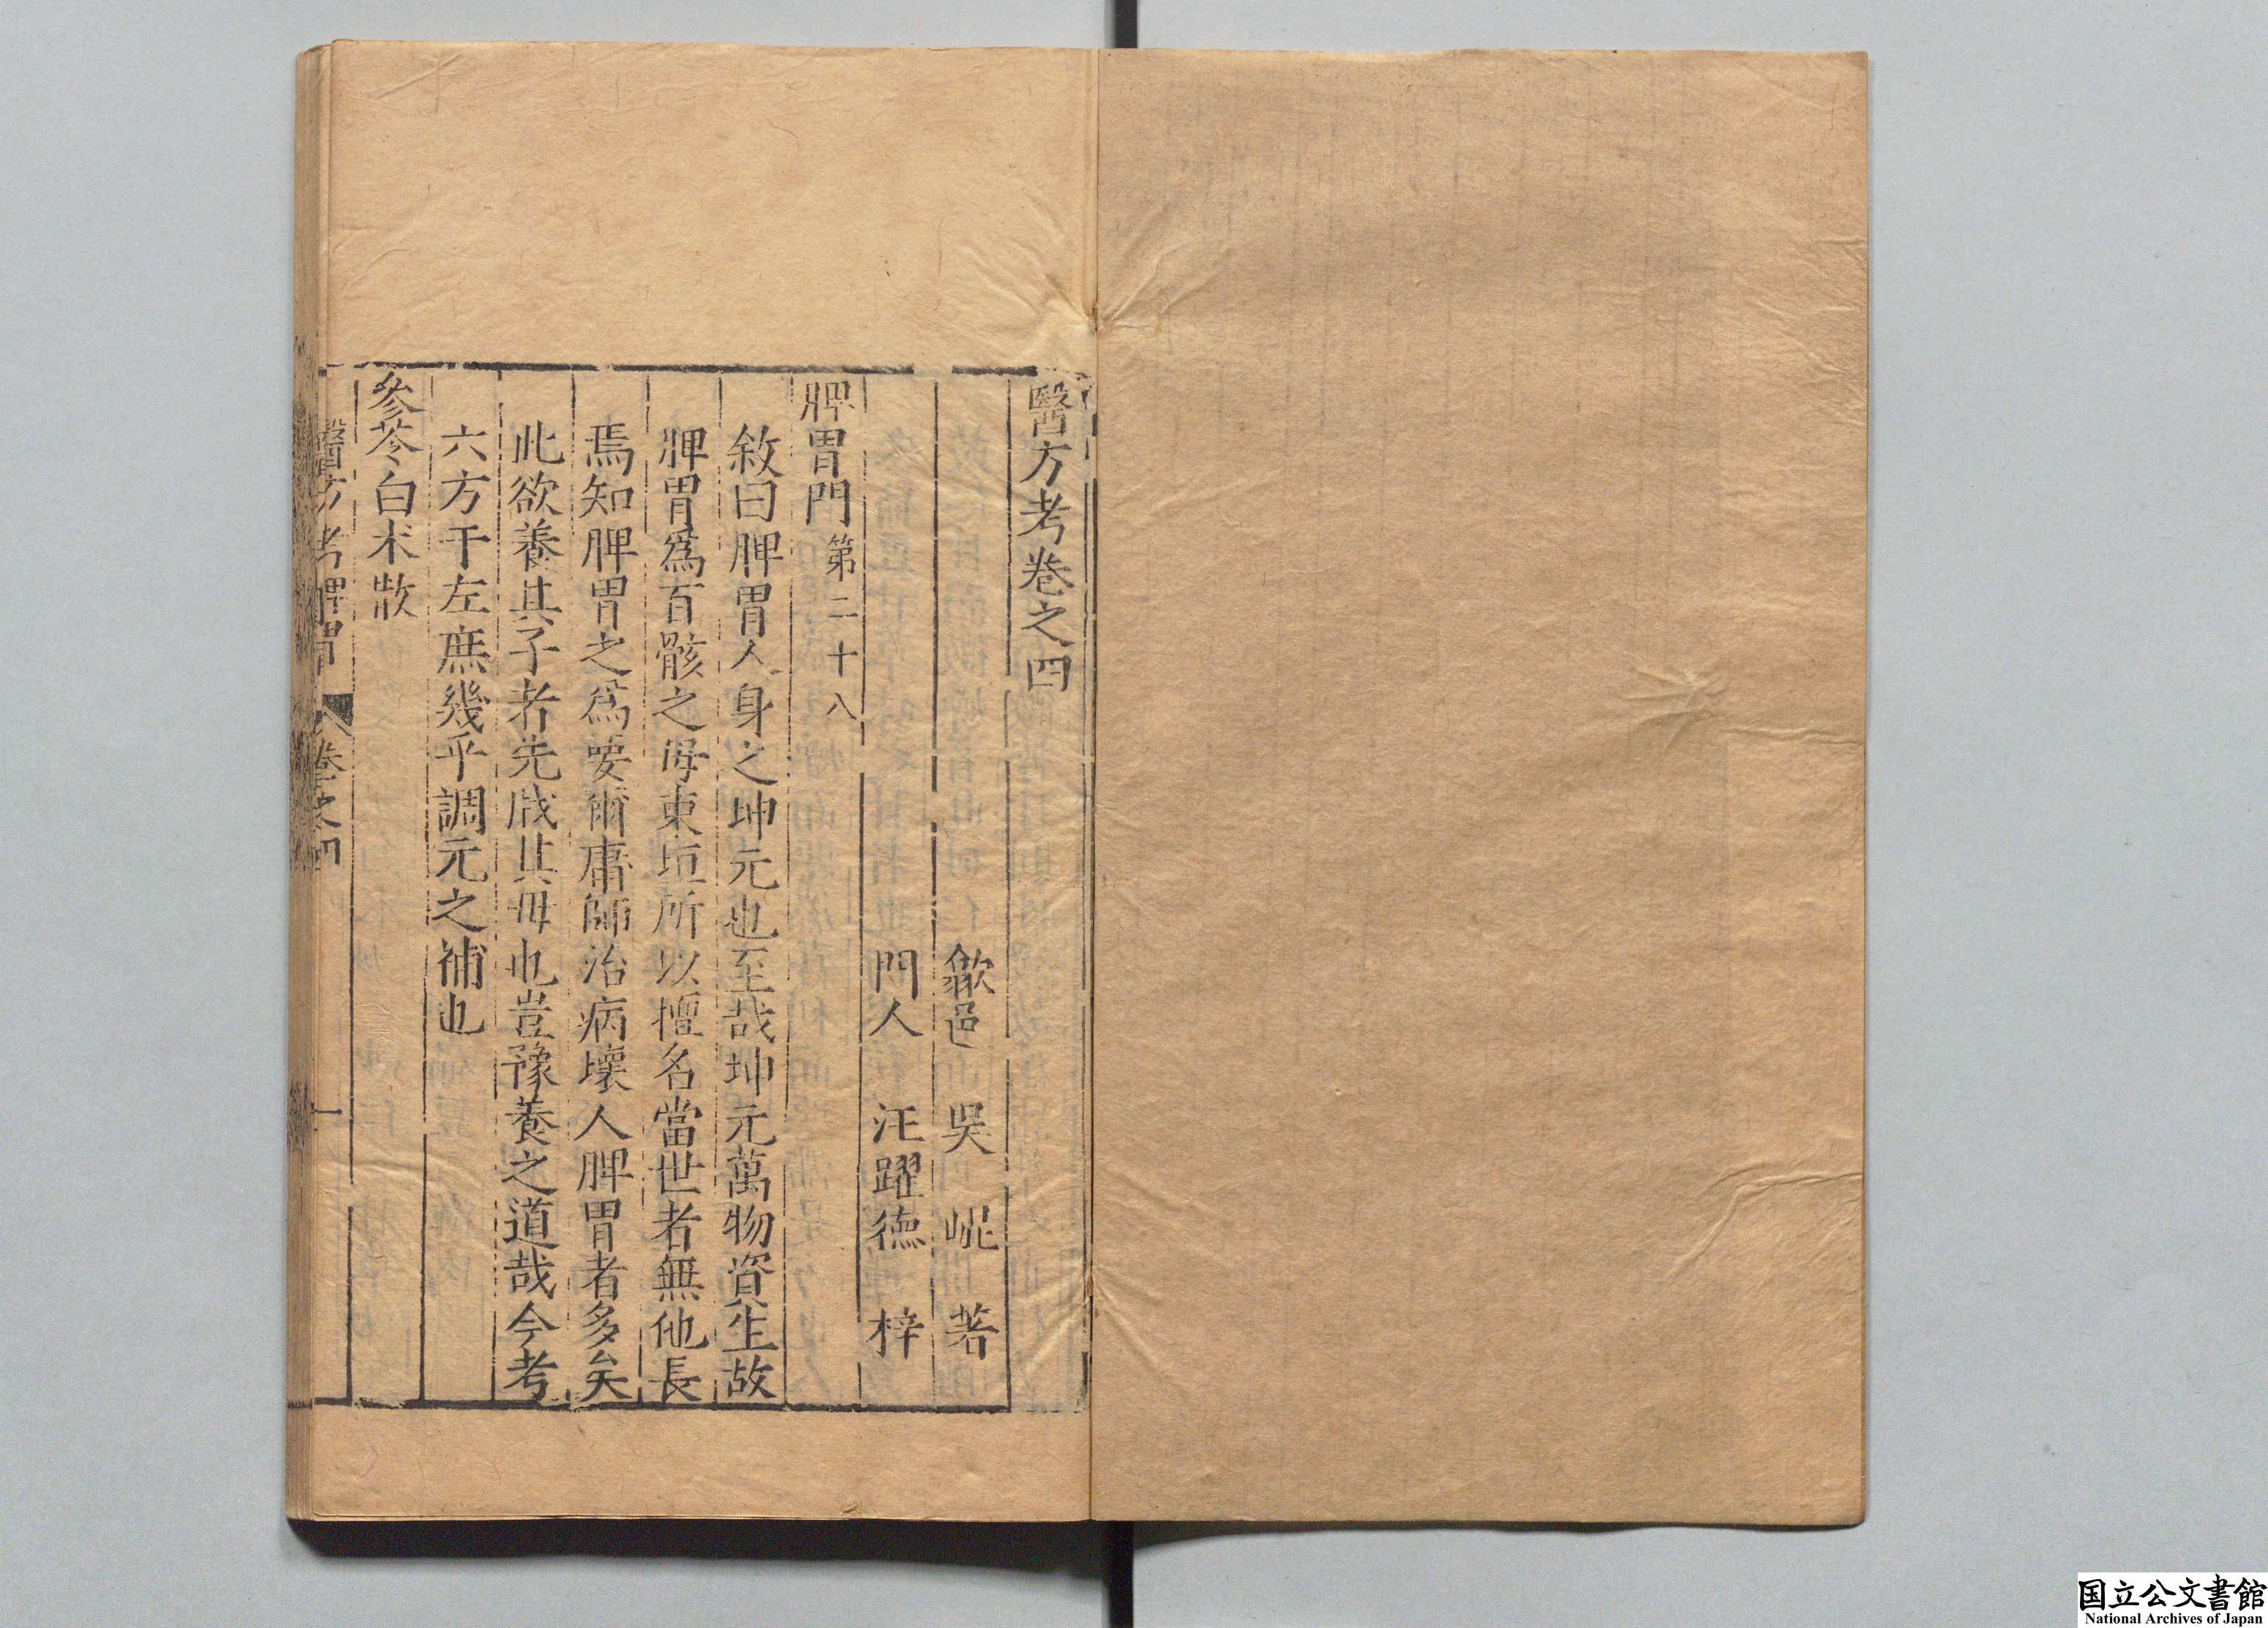 醫方考卷之四
歙邑 吳 崐 著
門人 汪躍德 梓
脾胃門第二十八
敘曰脾胃人身之坤元也至哉坤元萬物資生故
脾胃爲百骸之母東垣所以擅名當世者無他長
焉知脾胃之爲要爾庸師治病壞人脾胃者多矣
此欲養其子者先戕其母也豈豫養之道哉今考
六方于左庶幾乎調元之補也
參苓白朮散
醫方考脾胃 卷之四 一
国立公文書館
National Archives of Japan